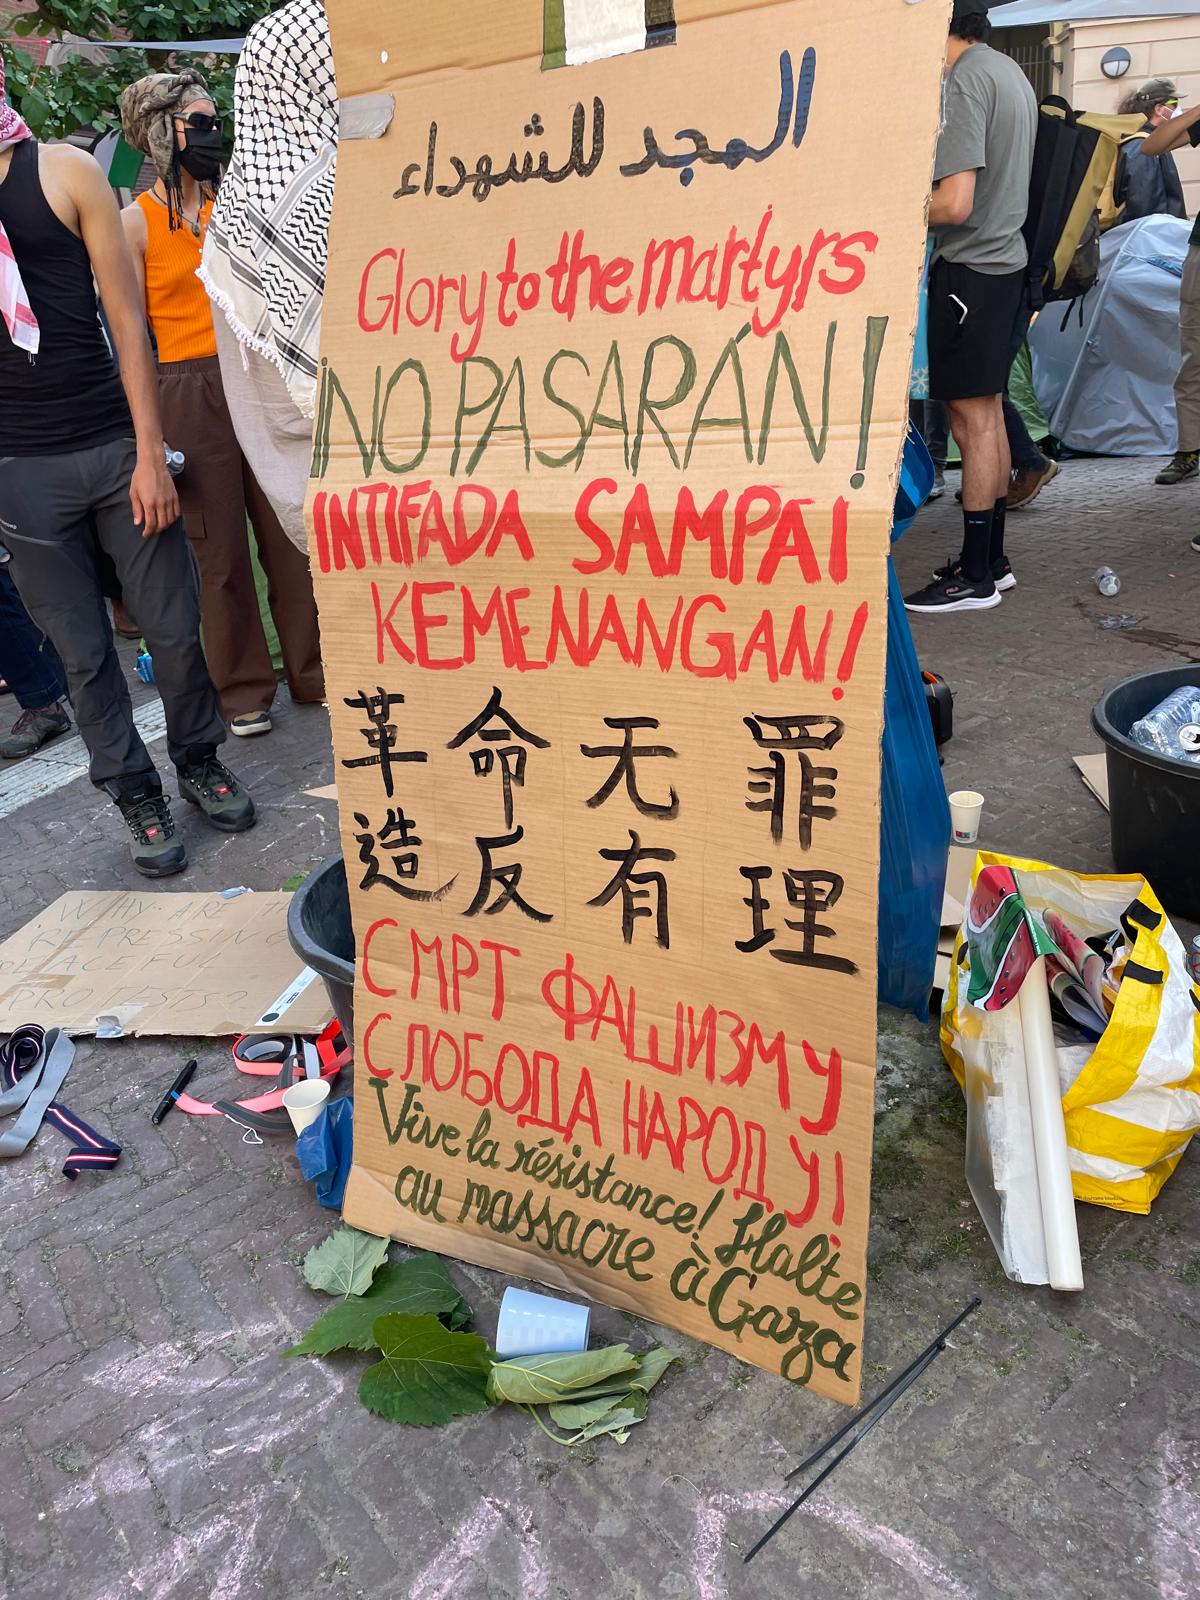 المجد للشهداء
Glory to the martyrs
¡NO PASARÁN!
INTIFADA SAMPAI
KEMENANGAN!
革命无罪
造反有理
СМРТ ФАШИЗМУ
СЛОБОДА НАРОДУ!
Vive la résistance! Halte
au massacre à Gaza
WHY ARE TH
REPRESSING
PEACEFUL
PROTESTS?